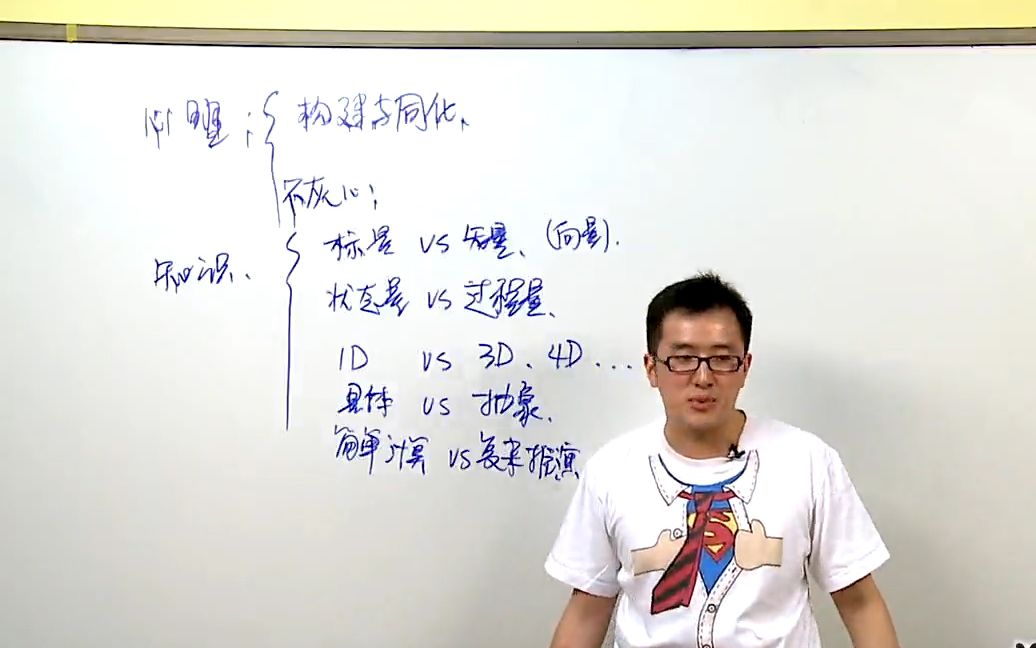 心理：构建与同化、
不灰心；
知识、
标量 vs 矢量、(向量).
状态量 vs 过程量、
1D vs 3D、4D...
具体 vs 抽象、
简单计算 vs 复杂推演
S